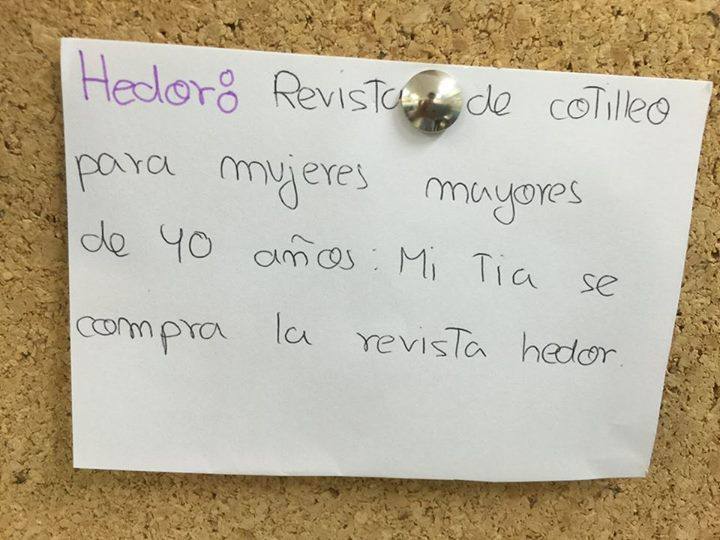 Hedor: Revista de coTilleo
para mujeres mayores
de 40 años: Mi Tia se
compra la revisTa hedor.